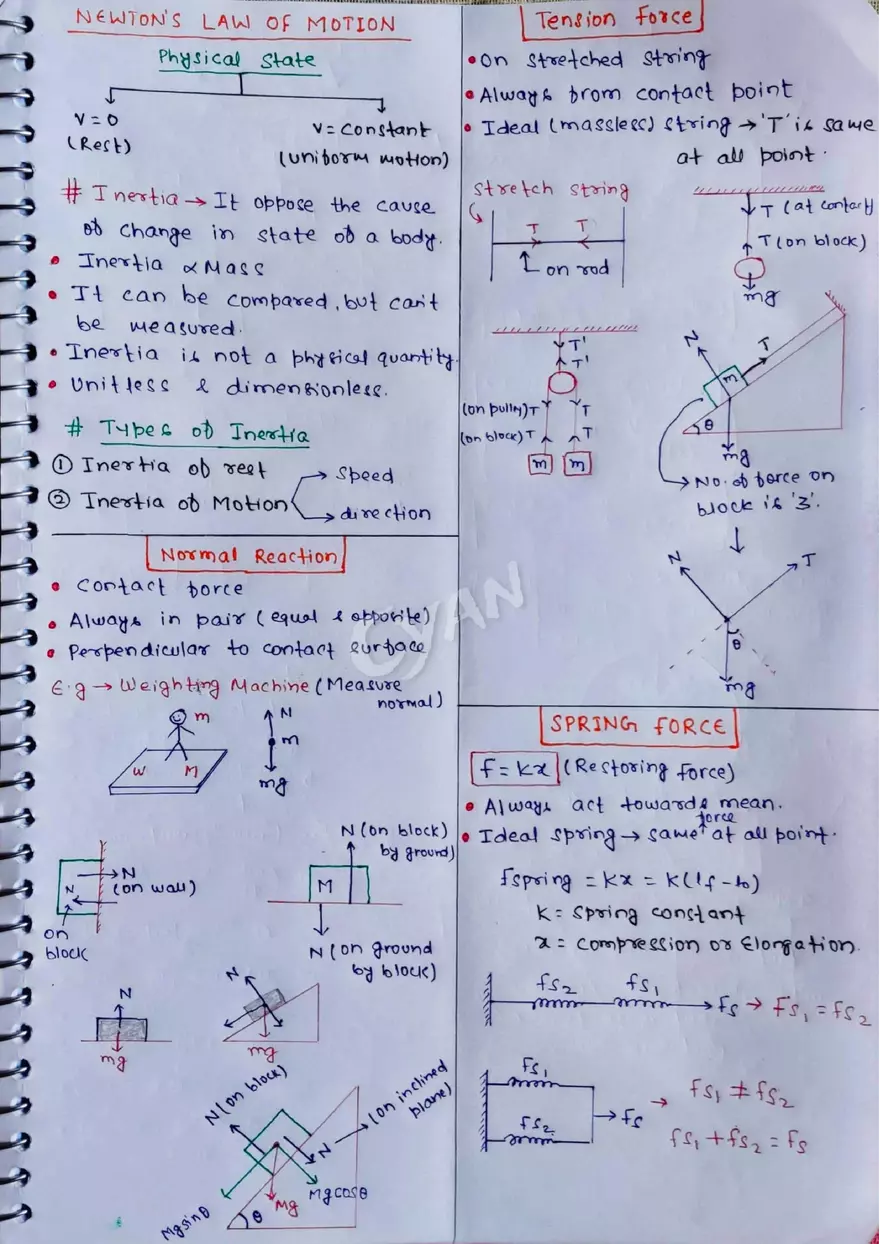 NEWTON'S LAW OF MOTION
Physical State
V = 0
(Rest)
V = Constant
(uniform motion)
# Inertia → It oppose the cause
of change in state of a body.
• Inertia ∝ Mass
• It can be compared, but can't
be measured.
• Inertia is not a physical quantity.
• Unitless & dimensionless.
# Types of Inertia
① Inertia of rest
② Inertia of Motion
→ Speed
→ direction
Normal Reaction
• Contact force
• Always in pair (equal & opposite)
• Perpendicular to contact surface
E.g → Weighting Machine (Measure
normal)
m
W M
N
m
mg
N
(on wall)
N
on
block
N (on block)
by ground)
M
N (on ground
by block)
N
mg
N
mg
N (on block)
(on inclined
plane)
N
Mg cosθ
Mg
Mg sinθ
θ
Tension Force
• On stretched string
• Always from contact point
• Ideal (massless) string → 'T' is same
at all point.
Stretch string
T T
on rod
T (at contact)
T (on block)
mg
T'
T'
(on pully) T T
(on block) T T
m m
N
T
m
θ
mg
→ No. of force on
block is '3'.
N
T
θ
mg
SPRING FORCE
f = Kx (Restoring Force)
• Always act towards mean.
force
• Ideal spring → same at all point.
fspring = Kx = K(lf - lo)
K = Spring constant
x = Compression or Elongation.
fS2 fS1
→ fS → FS1 = fS2
FS1
FS2
→ fS
→ fS1 ≠ fS2
fS1 + fS2 = fS
CYAN